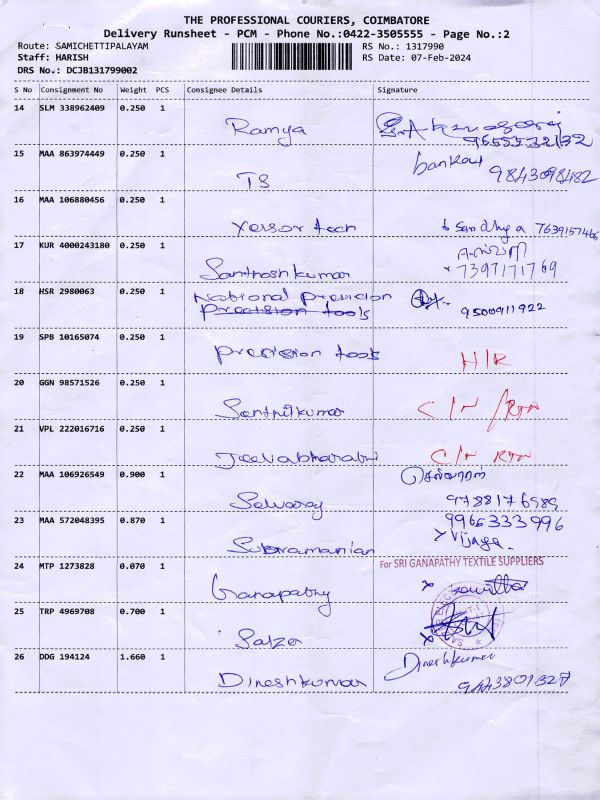 THE PROFESSIONAL COURIERS, COIMBATORE
Delivery Runsheet - PCM - Phone No.:0422-3505555 - Page No.:2
Route: SAMICHETTIPALAYAM
RS No.: 1317990
Staff: HARISH
RS Date: 07-Feb-2024
DRS No.: DCJB131799002
S No Consignment No Weight PCS Consignee Details Signature
14 SLM 338962409 0.250 1
Ramya
9655532132
15 MAA 863974449 0.250 1
TS
9843098482
16 MAA 106880456 0.250 1
tech
Sandhya 7639157466
17 KUR 4000243180 0.250 1
Santhosh kumar
7397171769
18 HSR 2980063 0.250 1
National precision
precision tools
9500911922
19 SPB 10165074 0.250 1
precision tools
H/R
20 GGN 98571526 0.250 1
Senthilkumar
C/N /RTN
21 VPL 222016716 0.250 1
Jeevabharathi
C/N RTN
22 MAA 106926549 0.900 1
Selvaraj
செல்வராஜ்
9788176989
23 MAA 572048395 0.870 1
Subramanian
9966333996
Vijaya
24 MTP 1273828 0.070 1
Ganapathy
For SRI GANAPATHY TEXTILE SUPPLIERS
25 TRP 4969708 0.700 1
Salzer
26 DDG 194124 1.660 1
Dineshkumar
Dineshkumar
9443801327